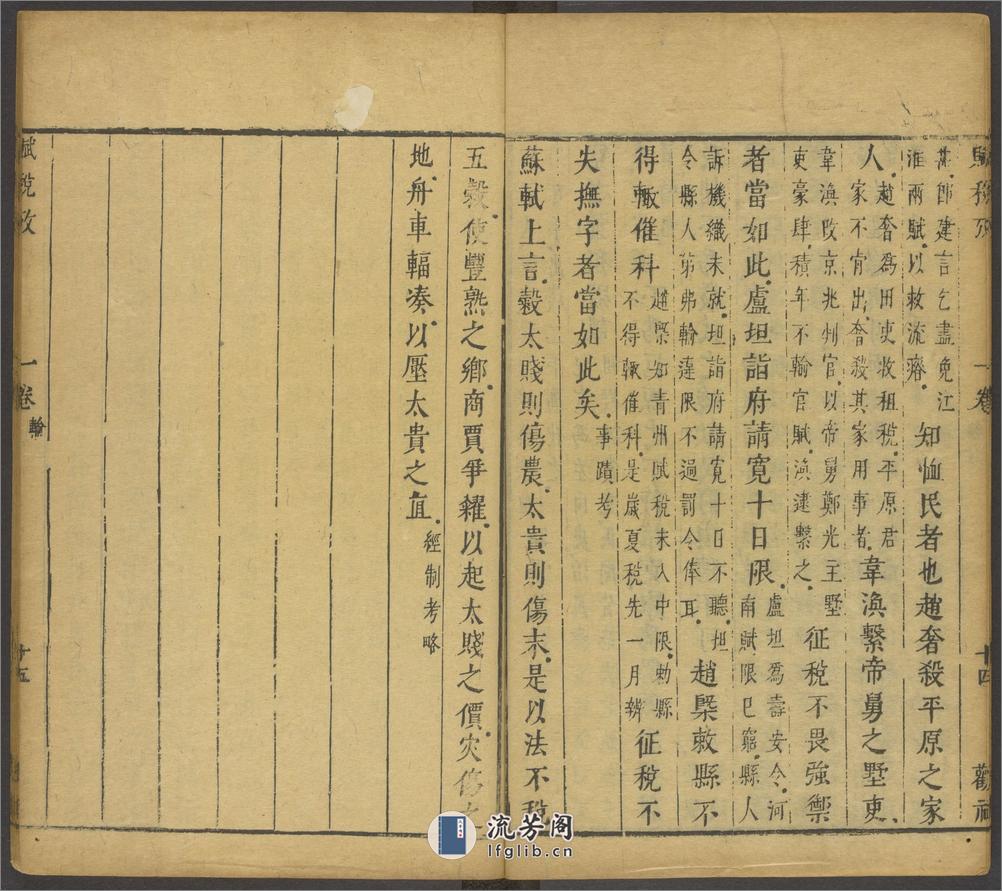 賦稅攷 一卷 十四 觀
其郎建言乞盡免江
淮兩賦以救流瘠 知恤民者也趙奢殺平原之家
人 趙奢為田吏收租稅平原君
家不肯出奢殺其家用事者 韋澳繫帝舅之墅吏
韋澳改京兆州官以帝舅鄭光主墅
吏豪肆積年不輸官賦澳逮繫之 征稅不畏強禦
者當如此盧坦詣府請寬十日限 盧坦為壽安令河
南賦限已窮縣人
訴機織未就坦詣府請寬十日不聽坦
令縣人第弗輸違限不過罰令俸耳 趙槩敕縣不
得輒催科 趙槩知青州賦稅未入中限勑縣
不得輒催科是歲夏稅先一月辨 征稅不
失撫字者當如此矣 事蹟考
蘇軾上言穀太賤則傷農太貴則傷末是以法不稅
五穀使豐熟之鄉商賈爭糴以起太賤之價災傷之
地舟車輻湊以壓太貴之直 經制考略
賦稅攷 一卷 輸 十五
流芳阁
lfglib.cn